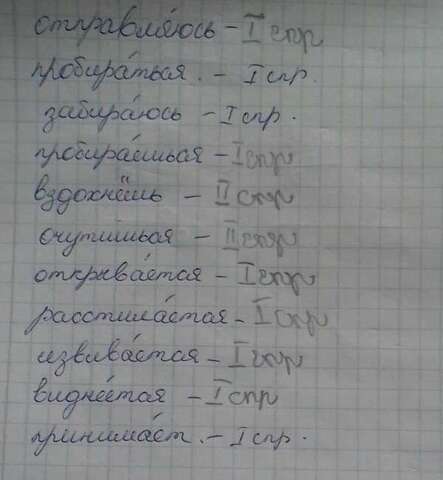 отправля́юсь – I спр
пробира́ться. – I спр.
забира́юсь – I спр.
пробира́ешься – I спр
вздохнёшь – II спр
очутишься – II спр
открыва́ется – I спр
расстила́ется – I спр
извива́ется – I спр
видне́ется – I спр
принима́ет. – I спр.